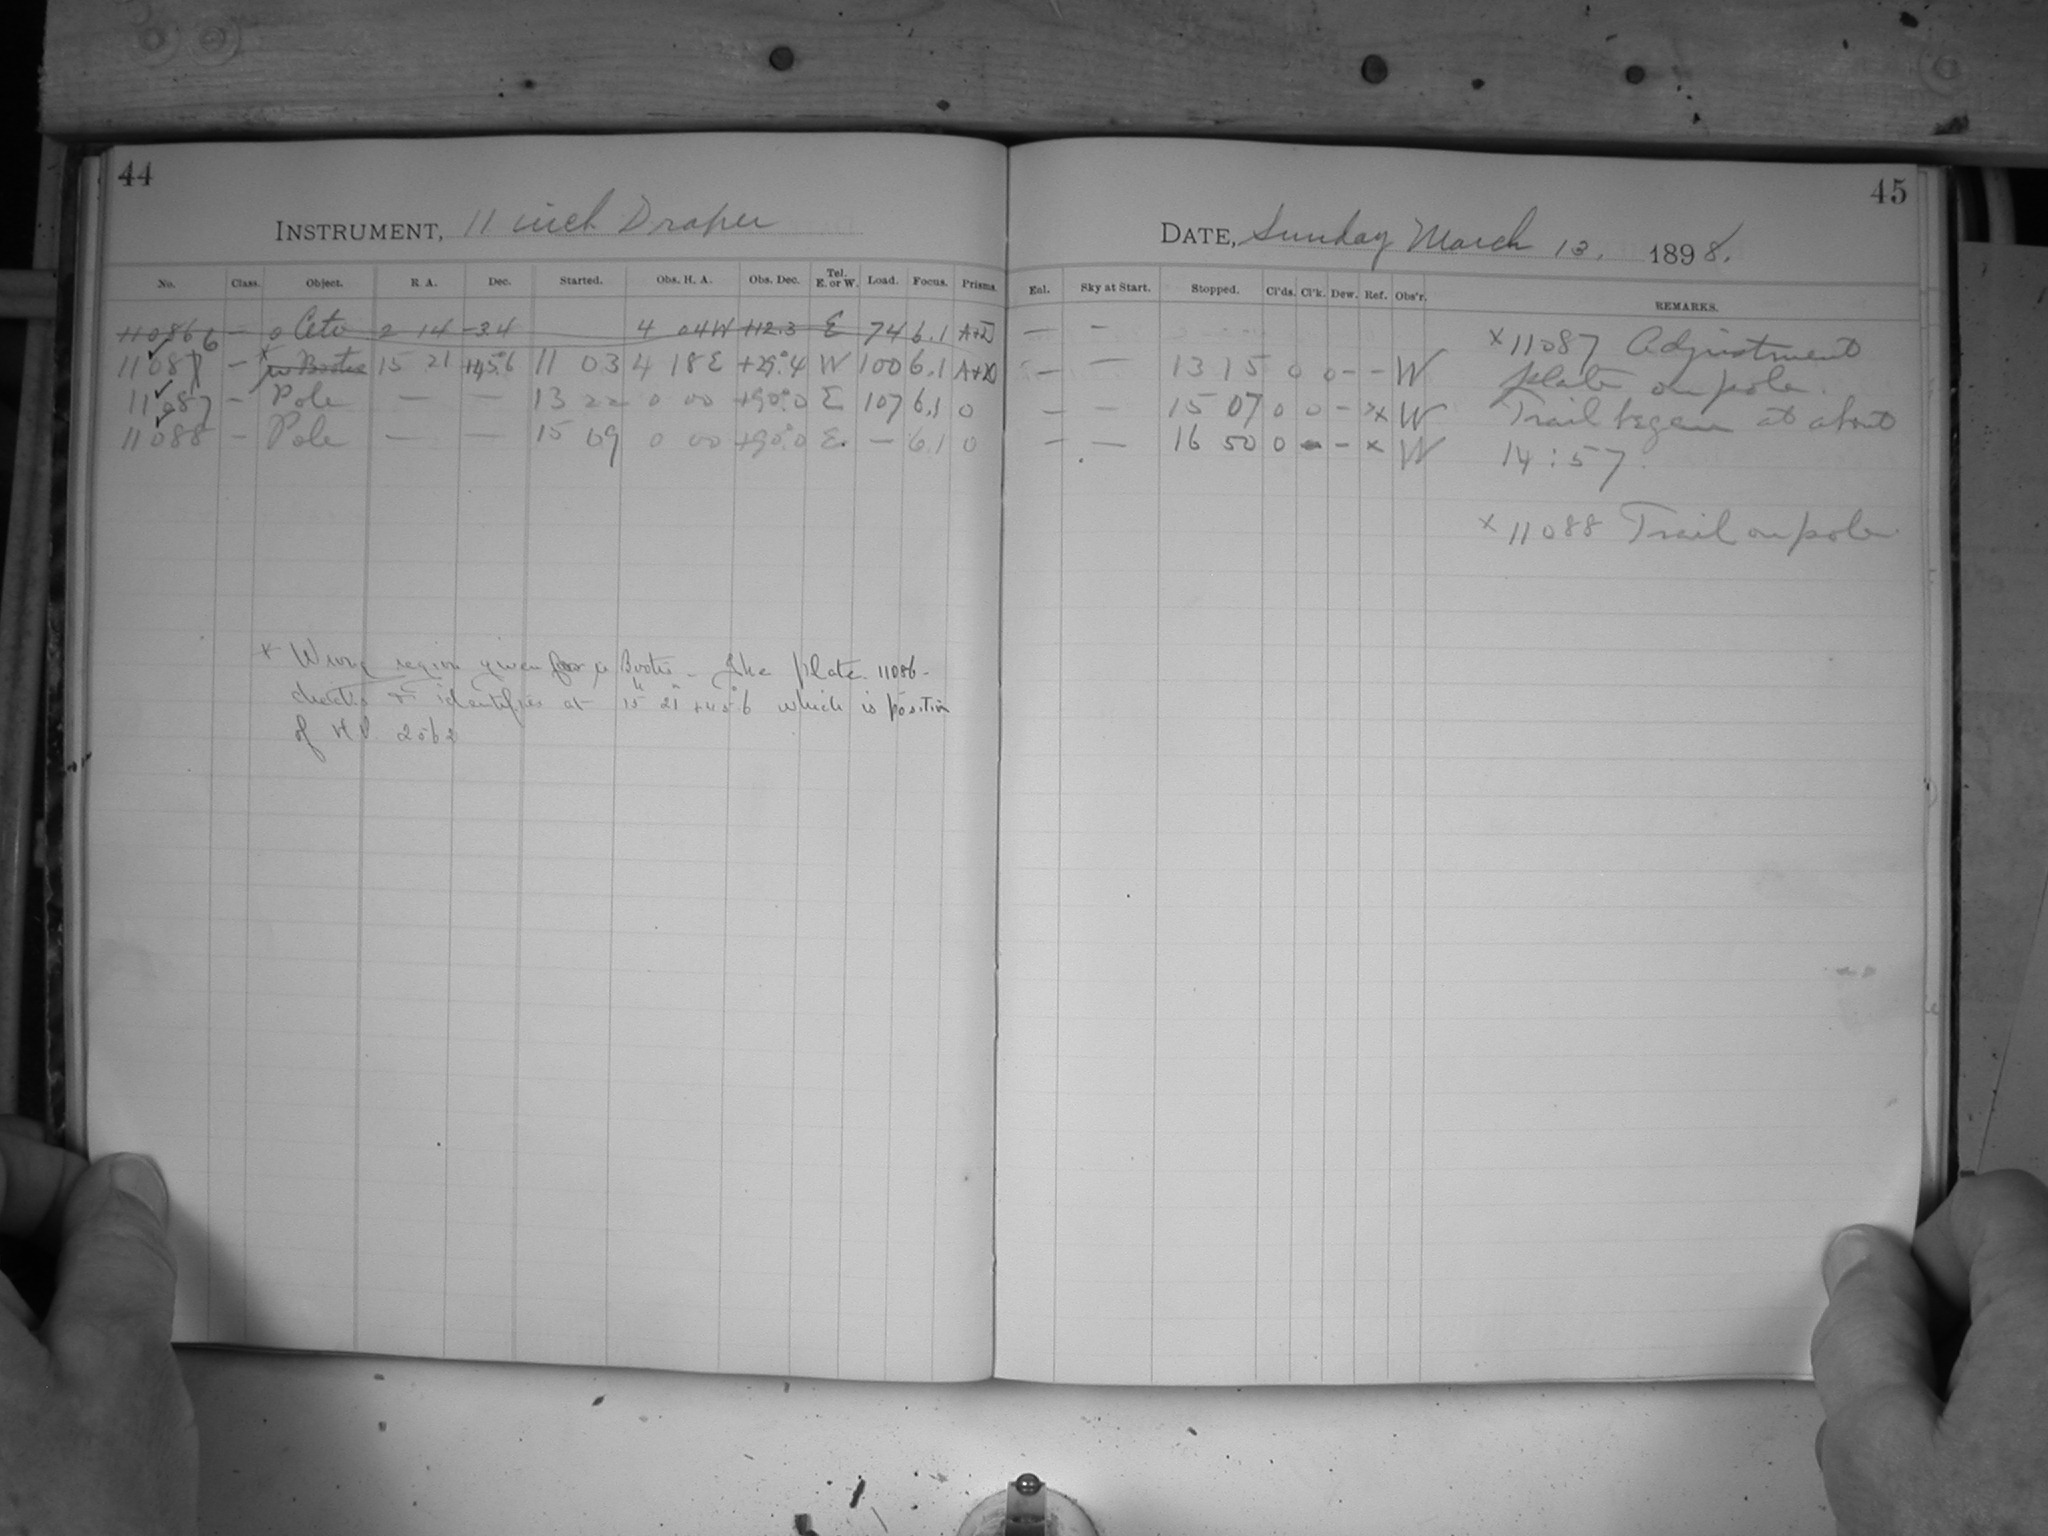 44
INSTRUMENT, 11 inch Draper
No. Class. Object. R. A. Dec. Started. Obs. H. A. Obs. Dec. Tel. E. or W. Load. Focus. Prisms.
11086 — o Ceti 2 14 -3.4 4 04W +12.3 E 74 6.1
11086 — × μ Bootis 15 21 +45°6 11 03 4 18 E +29°.4 W 100 6.1
11087 — Pole — — 13 22 0 00 +90°.0 E 107 6.1 0
11088 — Pole — — 15 09 0 00 +90°.0 E. — 6.1 0
× Wrong region given for μ Bootis - The plate 11086 -
identifies at 15 21 +45°6 which is position
of 2562
45
DATE, Sunday March 13, 1898.
Eal. Sky at Start. Stopped. Cl'ds. Cl'k. Dew. Ref. Obs'r. REMARKS.
— —
— — 13 15 0 0 - - W
— — 15 07 0 0 - × W
— — 16 50 0 - - × W
× 11087 Adjustment
plate on pole.
Trail began at about
14:57.
× 11088 Trail on pole.